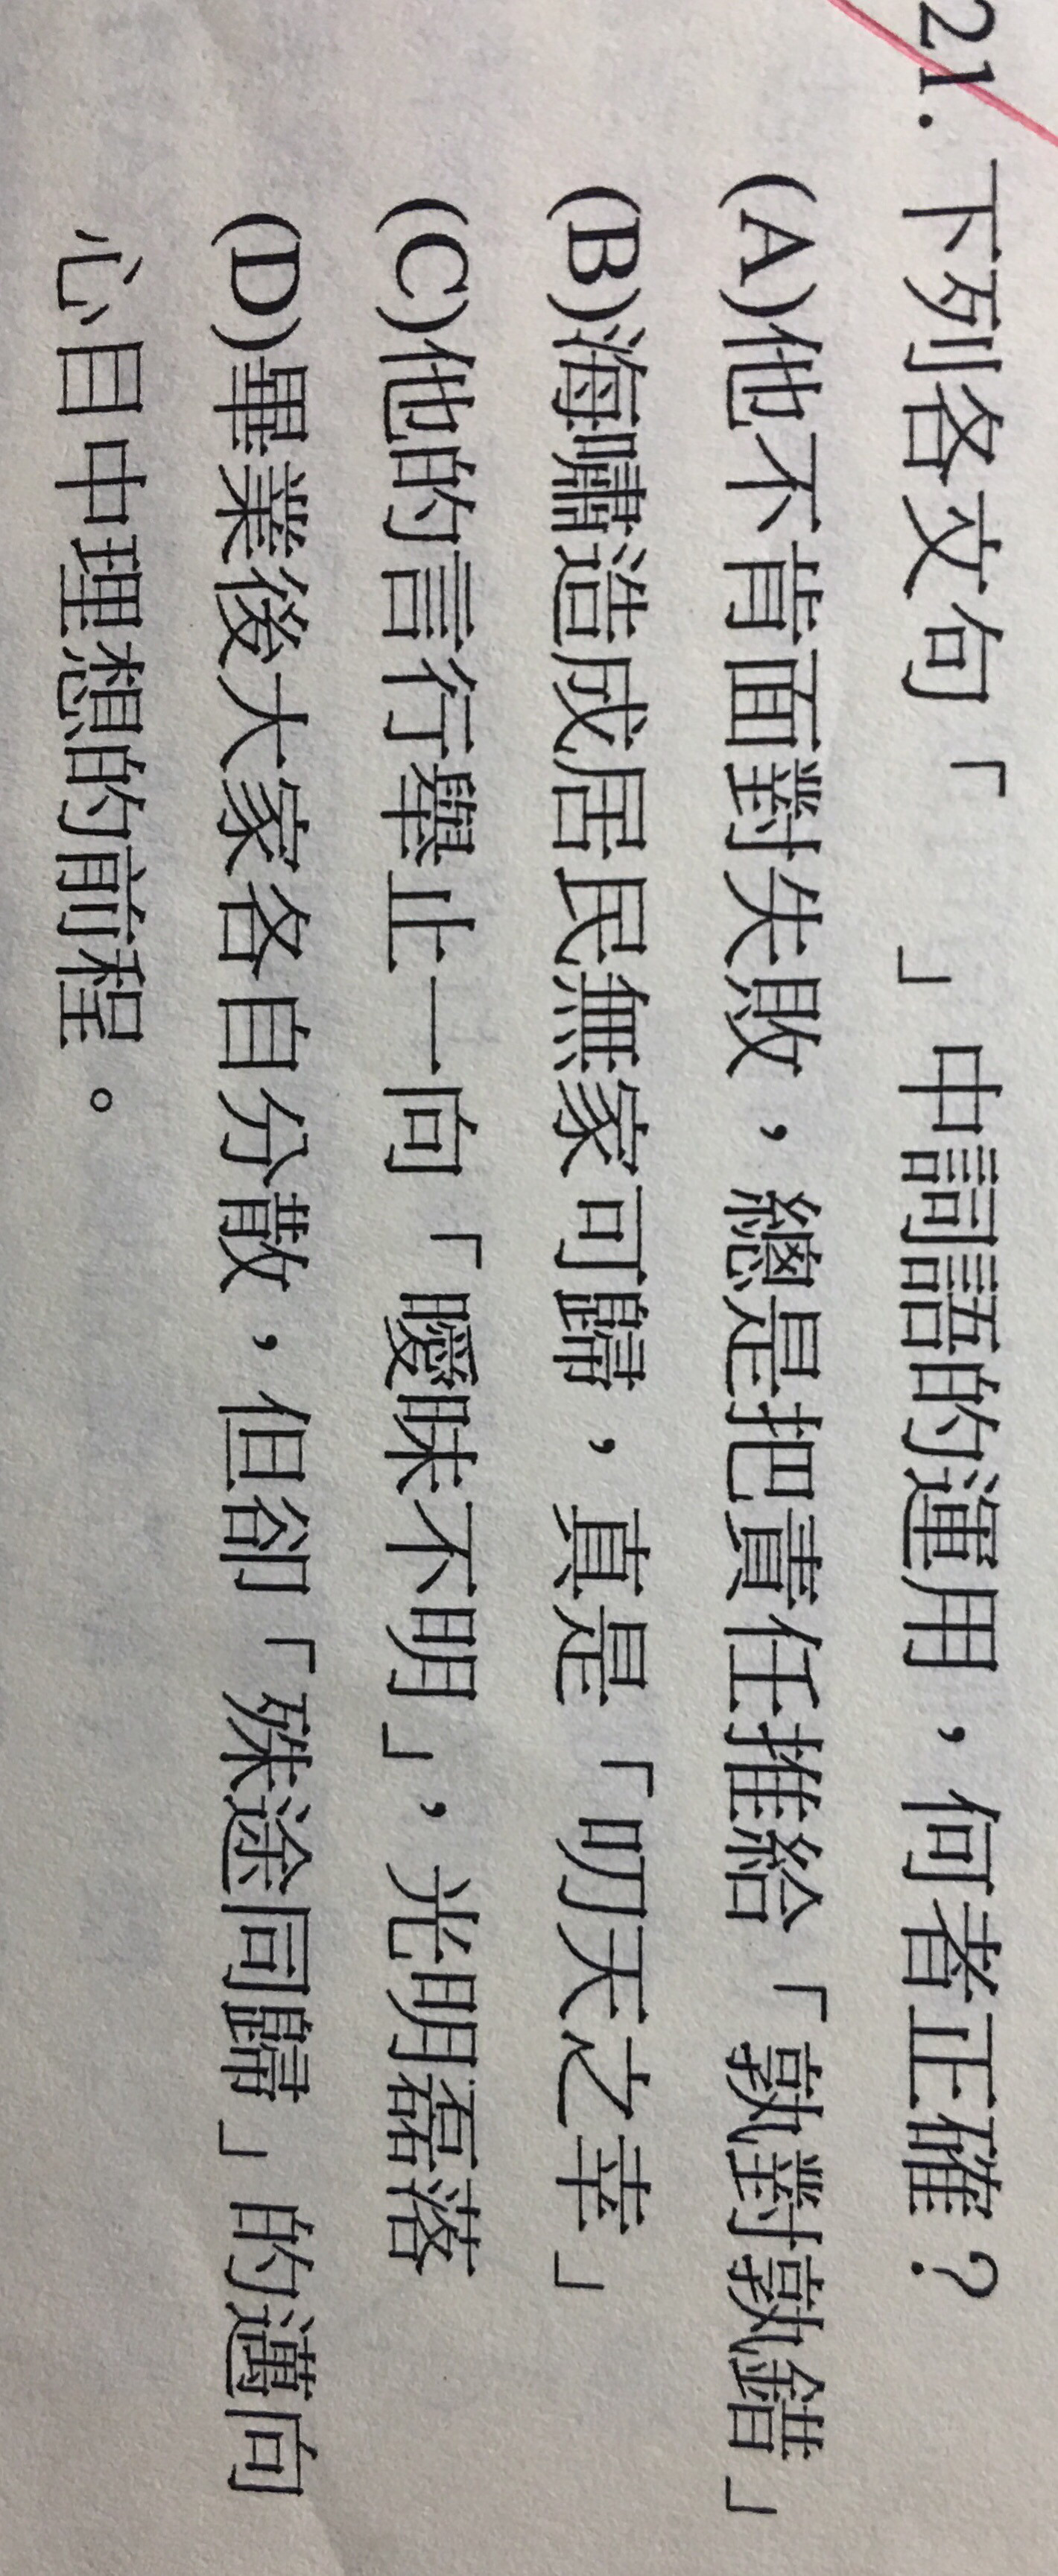 21. 下列各文句「　　」中詞語的運用，何者正確？
(A)他不肯面對失敗，總是把責任推給「孰對孰錯」
(B)海嘯造成居民無家可歸，真是「叨天之幸」
(C)他的言行舉止一向「曖昧不明」，光明磊落
(D)畢業後大家各自分散，但卻「殊途同歸」的邁向
心目中理想的前程。